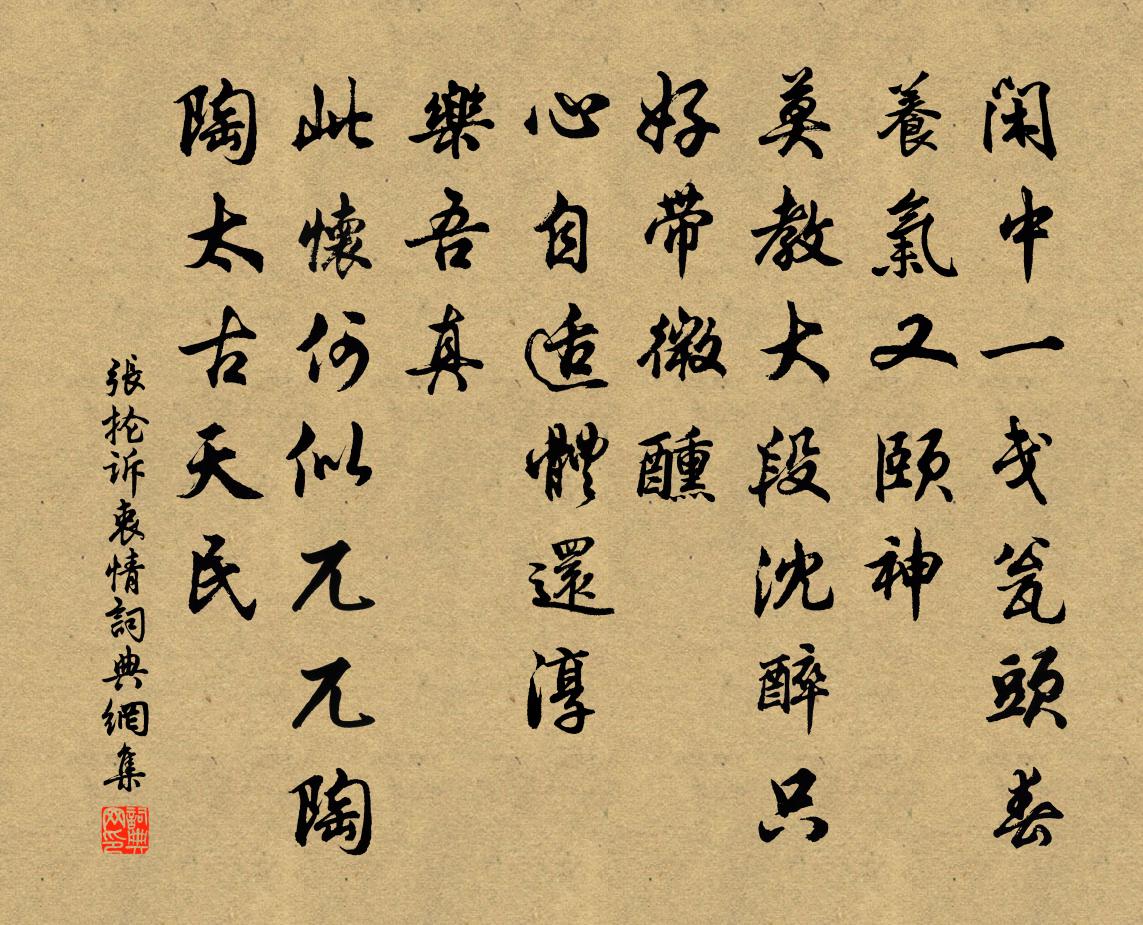 閑中一戋瓮頭春
養氣又頤神
莫教大段沈醉只
好带微醺
心自适體還淳
樂吾真
此懷何似兀兀陶
陶太古天民
張抡诉衷情詞典網集
詞典网印